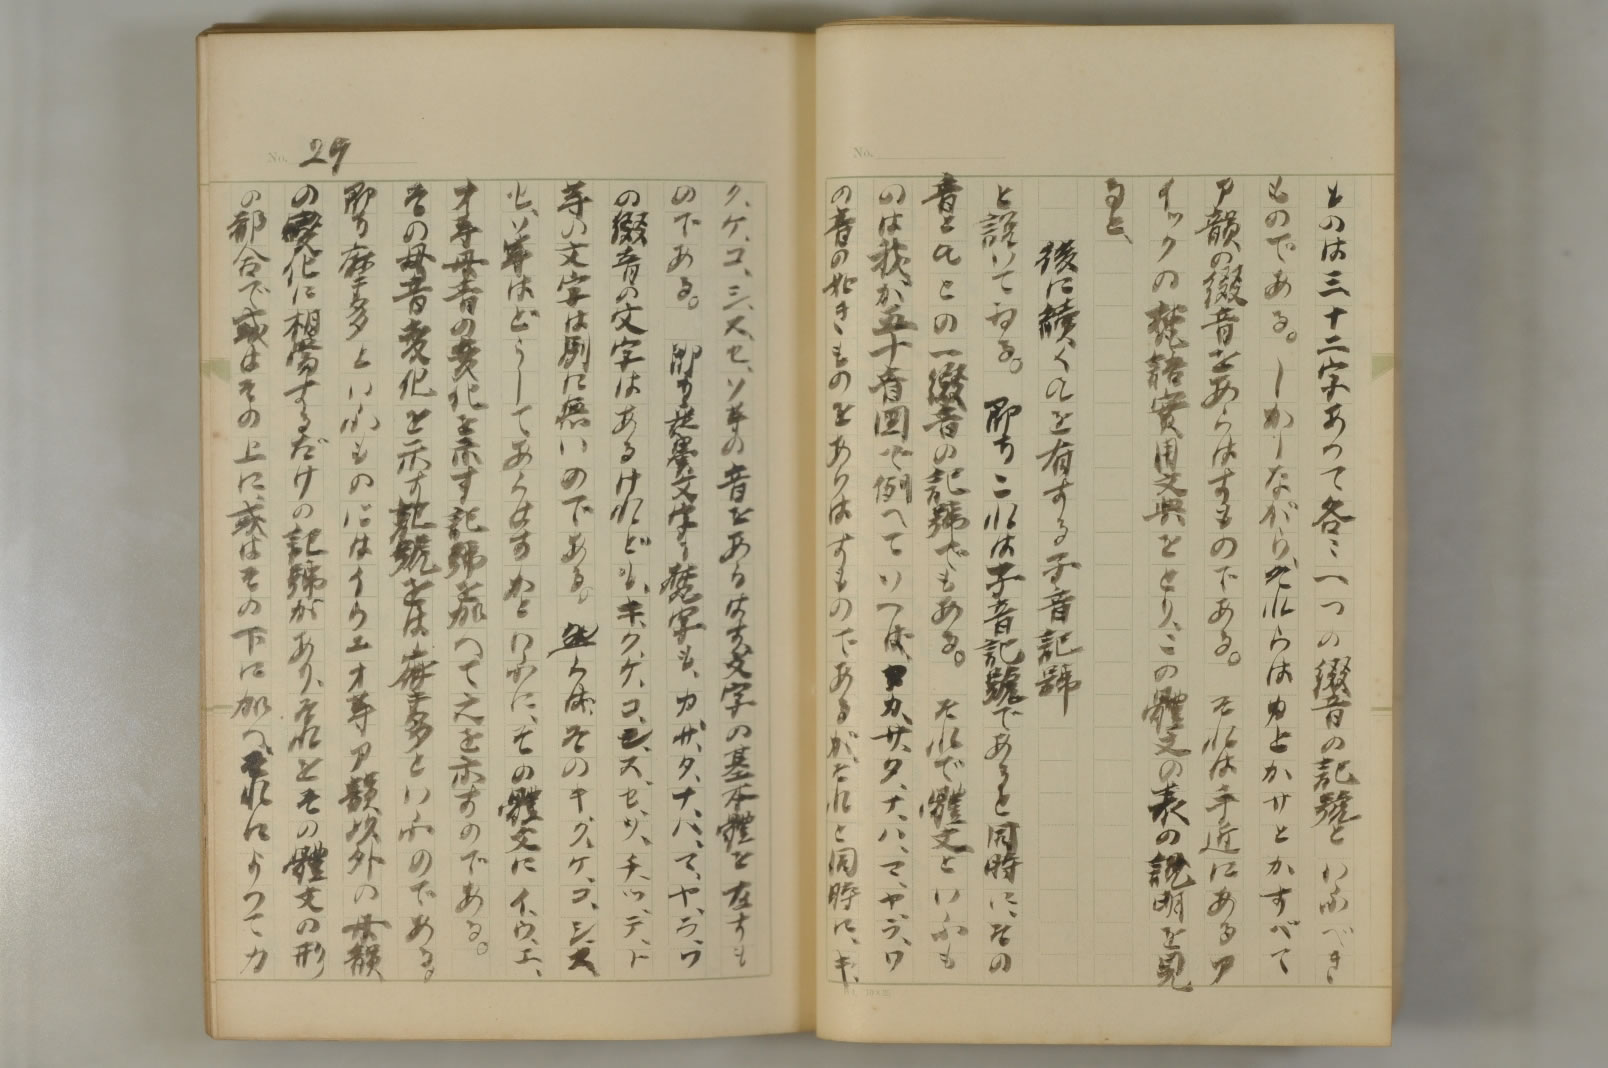 ものは三十二字あつて各〻一つの綴音の記號といふべき
ものである。しかしながらそれらはカとかサとかすべて
ア韻の綴音をあらはすものである。それは手近にあるア
イツクの梵語實用文典をとり、この體文の表の說明を見
ると、
後に續くアを有する子音記號
と說いてゐる。卽ちこれは子音記號であると同時に、その
音とアとの一綴音の記號でもある。それで體文といふも
のは我が五十音圖で例へていへば、カ、サ、タ、ナ、ハ、マ、ヤ、ラ、ワ
の音の如きものをあらはすものであるが、それと同時に、キ、
ク、ケ、コ、シ、ス、セ、ソ等の音をあらはす文字の基本體を在すも
のである。卽ち悉曇文字卽梵字も、カ、サ、タ、ナ、ハ、マ、ヤ、ラ、ワ
の綴音の文字はあるけれども、キ、ク、ケ、コ、シ、ス、セ、ソ、チ、ツ、テ、ト
等の文字は別に無いのである。然らば、そのキ、ク、ケ、コ、シ、ス
セ、ソ等はどうしてあらはすかといふに、その體文にイ、ウ、エ、
オ等母音の變化を示す記號を加へて之を示すのである。
その母音變化を示す記號をば麻多といふのである。
卽ち麻多といふものにはイウエオ等ア韻以外の母韻
の變化に相當するだけの記號があり、それをその體文の形
の都合で或はその上に、或はその下に加へ、それによつてカ
No. 29
No.